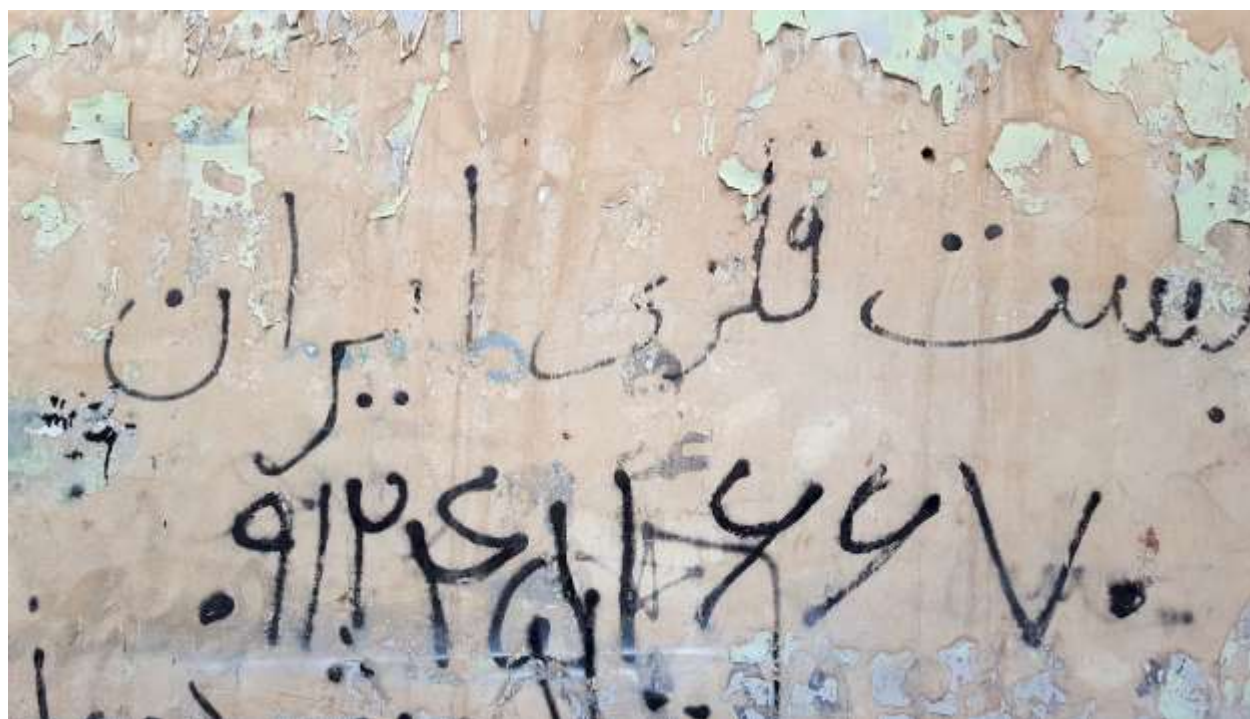 بست فلزی ایران
۰۹۱۲۴۱۱۶۶۷۰